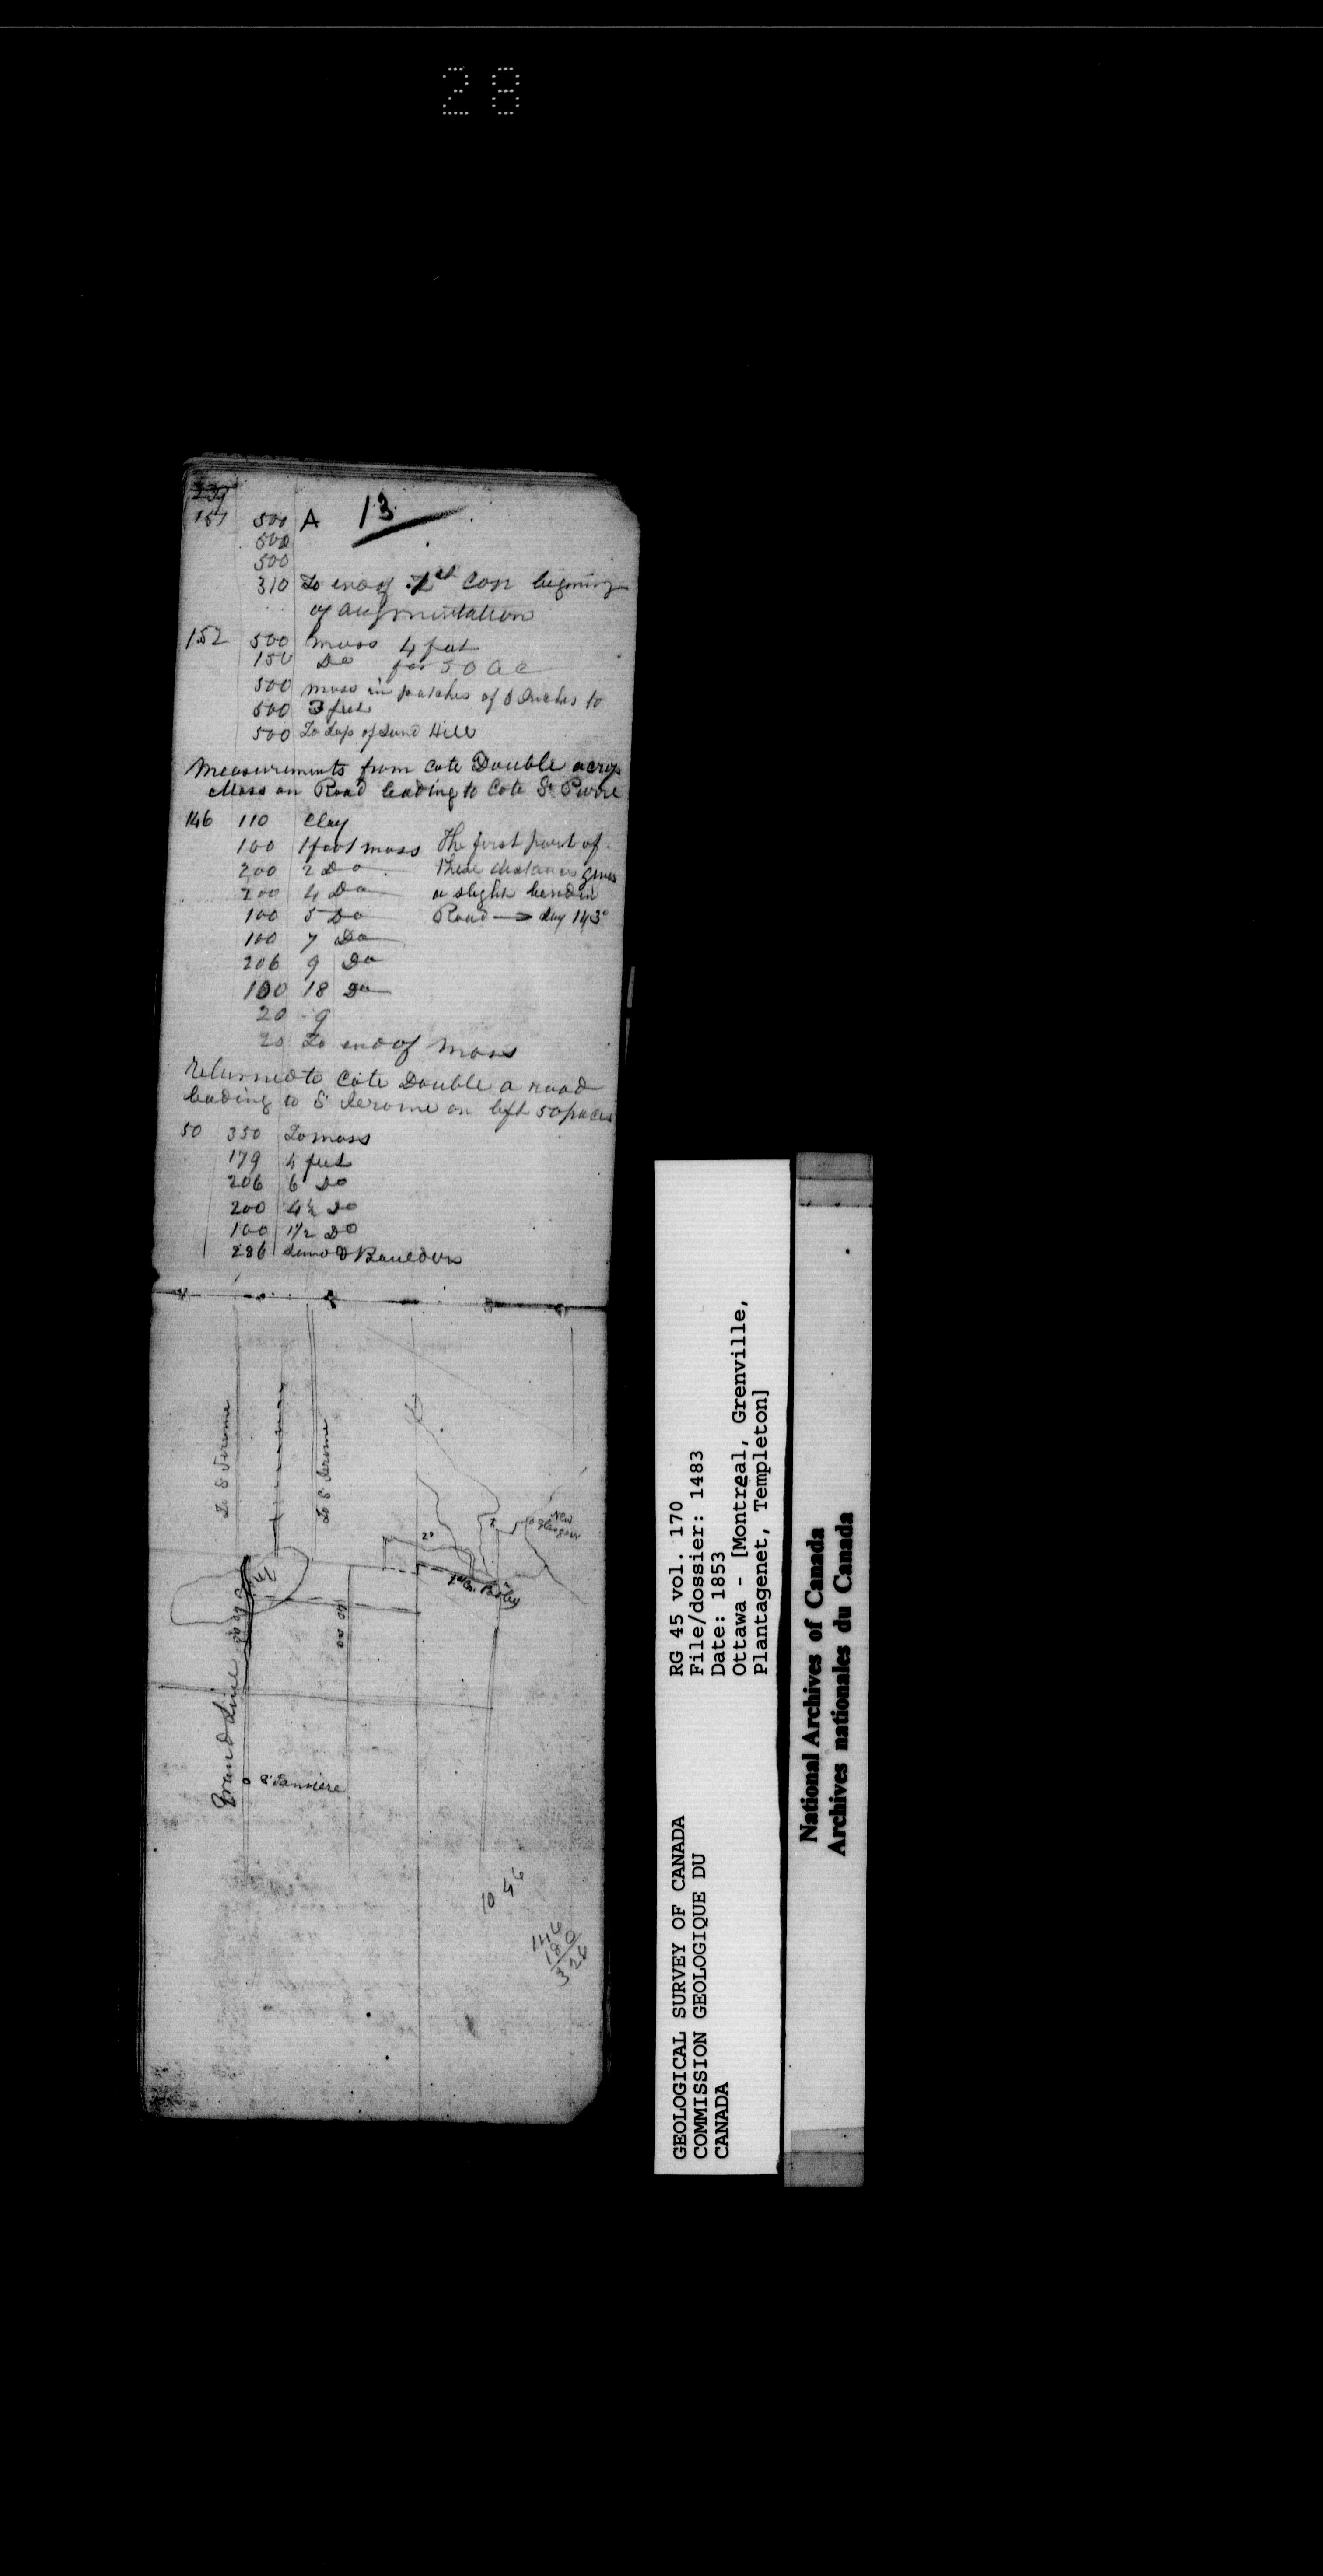 28
239
151 500 A 13
500
500
310 To end of 1st Con begining
of augmentation
152 500 moss 4 feet
150 Do for 50 ac
500 moss in patches of 6 Inches to
500 3 feet
500 To top of Sand Hill
Measurements from Cote Double across
Moss on Road leading to Cote St Pierre
146 110 Clay
100 1 foot moss The first part of
200 2 Do these distances gives
200 4 Do a slight bend in
100 5 Do Road say 143°
100 7 Do
206 9 Do
100 18 Do
20 9
20 To end of moss
Returned to Cote Double a road
leading to St Jerome on left 50 paces
50 350 To moss
179 4 feet
206 6 Do
200 4½ Do
100 1½ Do
286 Sand & Boulders
To St Jerome
To St Jerome
New
Glasgow
2°
Grand Line
St Janviere
10 46
146
180
326
RG 45 vol. 170
File/dossier: 1483
Date: 1853
Ottawa - [Montreal, Grenville,
Plantagenet, Templeton]
GEOLOGICAL SURVEY OF CANADA
COMMISSION GEOLOGIQUE DU
CANADA
National Archives of Canada
Archives nationales du Canada